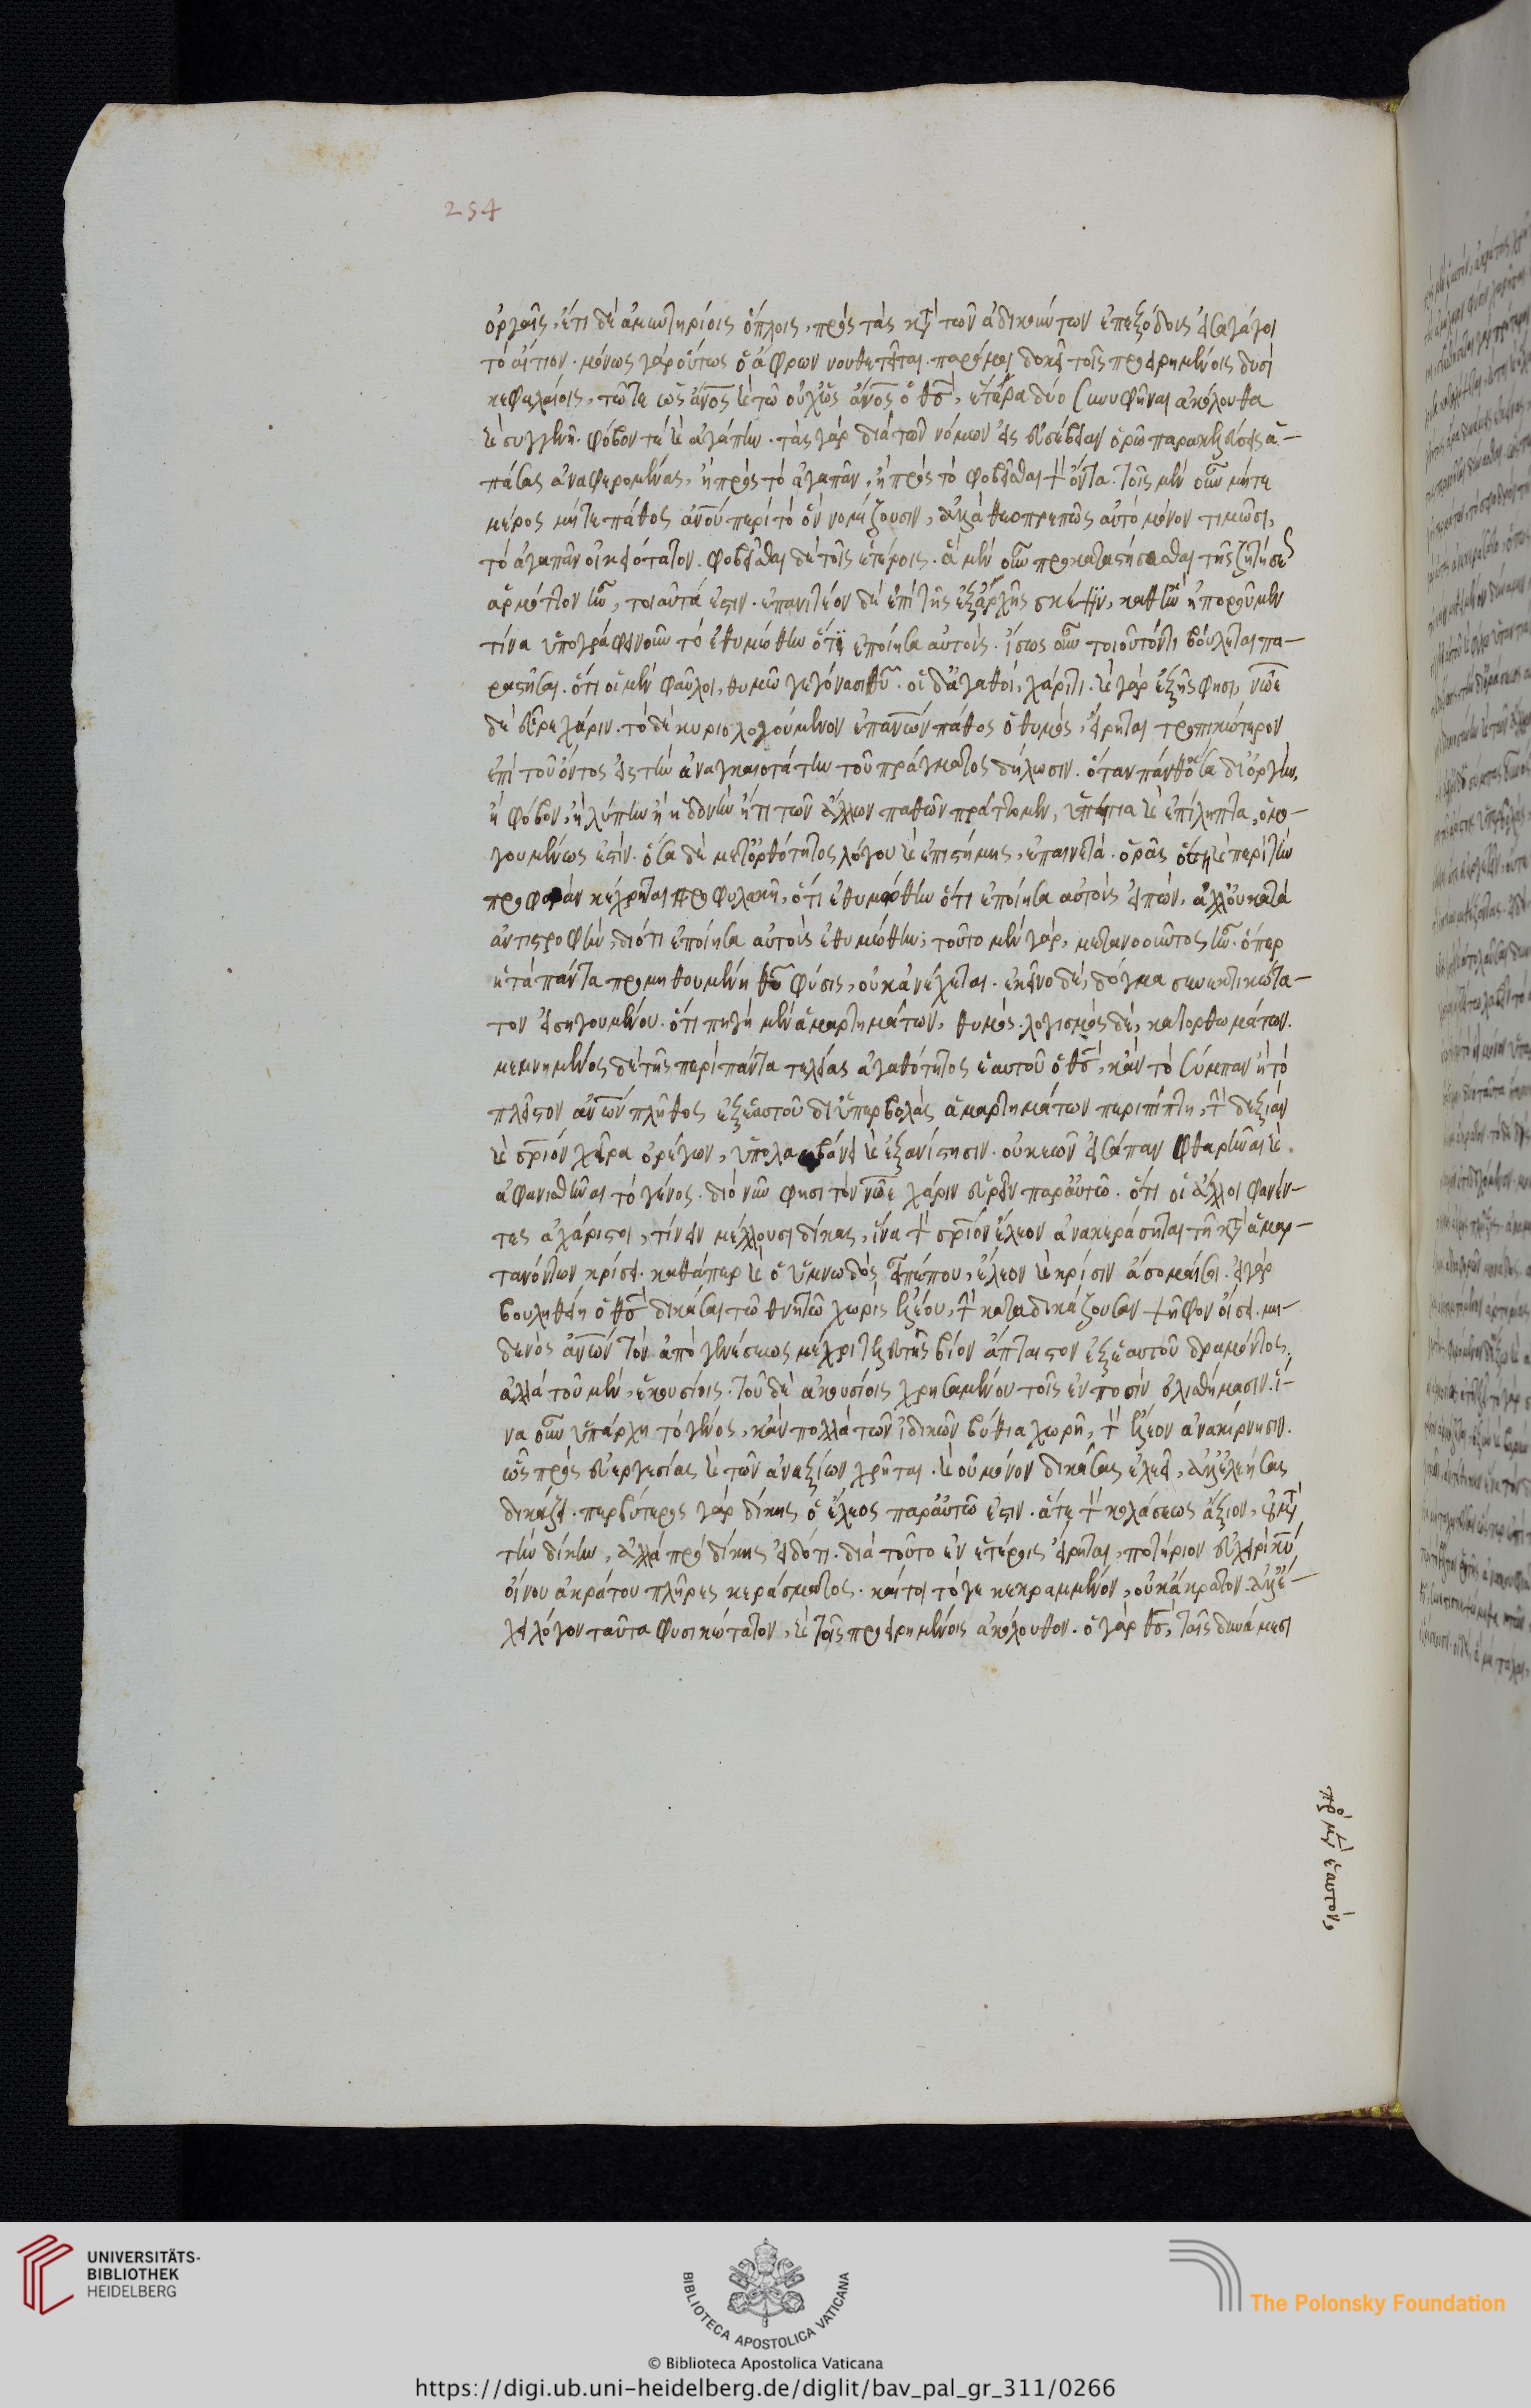 254
ὀργαῖς, ἔτι δὲ ἀμυντηρίοις ὅπλοις, πρὸς τὰς κτ τῶν ἀδικούντων ἐπεξόδους εἰσαγάγοι
τὸ αἴτιον. μόνως γὰρ οὕτως ὁ ἄφρων νουθετεῖται. παρό μοι δοκεῖ τοῖς προειρημένοις δυσὶ
κεφαλαίοις, τῶτε ὡς ἄνος καὶ τῶ οὐχ ὡς ἄνος ὁ θς, ἕτερα δύο συνυφῆναι ἀκόλουθα
καὶ συγγενῆ. φόβον τὲ καὶ ἀγάπην. τὰς γὰρ διὰ τῶν νόμων εἰς εὐσέβειαν ὁρῶ παρακελεύσεις ἁ-
πάσας ἀναφερομένας, ἢ πρὸς τὸ ἀγαπᾶν, ἢ πρὸς τὸ φοβεῖσθαι τὸν ὄντα. τοῖς μὲν οὖν μήτε
μέρος μήτε πάθος ἀνου περὶ τὸ ὂν νομίζουσιν, ἀλλὰ θεοπρεπῶς αὐτὸ μόνον τιμῶσι,
τὸ ἀγαπᾶν οἰκειότατον. φοβεῖσθαι δὲ τοῖς ἑτέροις. ἃ μὲν οὖν προκαταστήσασθαι τῆς ζητήσε
ἁρμόττον ἦν, τοιαῦτά ἐστιν. ἐπανιτέον δὲ ἐπὶ τῆς ἐξαρχῆς σκέψιν, καθ' ἣν ἠποροῦμεν
τίνα ὑπογράφει νοῦν τὸ ἐθυμώθην ὅτι ἐποίησα αὐτούς. ἴσως οὖν τοιοῦτόν τι βούλεται πα-
ραστῆσαι. ὅτι οἱ μὲν φαῦλοι, θυμῶ γεγόνασι θυ. οἱ δ' ἀγαθοὶ, χάριτι. καὶ γὰρ ἑξῆς φησι, νῶε
δὲ εὗρε χάριν. τὸ δὲ κυριολογούμενον ἐπ' ανων πάθος ὁ θυμὸς, εἴρηται τροπικώτερον
ἐπὶ τοῦ ὄντος εἰς τὴν ἀναγκαιοτάτην τοῦ πράγματος δήλωσιν. ὅταν πάνθ' ὅσα δι' ὀργὴν,
ἢ φόβον, ἢ λύπην ἢ ἡδονὴν ἤ τι τῶν ἄλλων παθῶν πράττομεν, ὑπαίτια καὶ ἐπίληπτα, ὁμο-
γουμένως ἐστίν. ὅσα δὲ μετ' ὀρθότητος λόγου καὶ ἐπιστήμης, ἐπαινετά. ὁρᾶς ὅση καὶ περὶ τὴν
προφορὰν κέχρηται προφυλακῆ, ὅτι ἐθυμώθην ὅτι ἐποίησα αὐτοὺς εἰπὼν, ἀλλ' οὐ κατὰ
ἀντιστροφὴν, διότι ἐποίησα αὐτοὺς ἐθυμώθην; τοῦτο μὲν γὰρ, μετανοοῦντος ἦν. ὅπερ
ἡ τὰ πάντα προμηθουμένη θυ φύσις, οὐκ ἀνέχεται. ἐκεῖνο δὲ, δόγμα συνεκτικώτα-
τον εἰσηγουμένου. ὅτι πηγὴ μὲν ἁμαρτημάτων, θυμὸς. λογισμὸς δὲ, κατορθωμάτων.
μεμνημένος δὲ τῆς περὶ πάντα τελείας ἀγαθότητος ἑαυτοῦ ὁ θς, κἂν τὸ σύμπαν ἢ τὸ
πλεῖστον ανων πλῆθος ἐξ ἑαυτοῦ δι' ὑπερβολὰς ἁμαρτημάτων περιπίπτη, τὴν δεξιὰν
καὶ σριον χεῖρα ὀρέγων, ὑπολαμβάνει καὶ ἐξανίστησιν. οὐκ ἐῶν εἰσάπαν φθαρῆναι καὶ
ἀφανισθῆναι τὸ γένος. διὸ νῦν φησι τὸν νῶε χάριν εὑρεῖν παρ' αὐτῶ. ὅτι οἱ ἄλλοι φανέν-
τες ἀχάριστοι, τίνειν μέλλουσι δίκας, ἵνα τὸν σριον ἔλεον ἀνακεράσηται τῆ κτ ἁμαρ-
τανόντων κρίσει. καθάπερ καὶ ὁ ὑμνωδὸς εἶπέ που, ἔλεον καὶ κρίσιν ἄσομαί σοι. εἰ γὰρ
βουληθείη ὁ θς δικάσαι τῶ θνητῶ χωρὶς ἐλέου, τὴν καταδικάζουσαν ψῆφον οἴσει. μη-
δενὸς ανων τὸν ἀπὸ γενέσεως μέχρι τελευτῆς βίον ἄπταιστον ἐξ ἑαυτοῦ δραμόντος.
ἀλλὰ τοῦ μὲν, ἑκουσίοις. τοῦ δὲ ἀκουσίοις χρησαμένου τοῖς ἐν ποσὶν ὀλισθήμασιν. ἵ-
να οὖν ὑπάρχη τὸ γένος, κἂν πολλὰ τῶν ἰδικῶν βύθια χωρῆ, τὸν ἔλεον ἀνακίρνησιν.
ὧ πρὸς εὐεργεσίας καὶ τῶν ἀναξίων χρῆται. καὶ οὐ μόνον δικάσας ἐλεεῖ, ἀλλ' ἐλεήσας
δικάζει. πρεσβύτερος γὰρ δίκης ὁ ἔλεος παρ' αὐτῶ ἐστιν. ἅτε τὸν κολάσεως ἄξιον, οὐ μετ
τὴν δίκην, ἀλλὰ πρὸ δίκης εἰδότι. διὰ τοῦτο ἐν ἑτέροις εἴρηται, ποτήριον ἐν χειρὶ κυ
οἴνου ἀκράτου πλῆρες κεράσματος. καίτοι τό γε κεκραμμένον, οὐκ ἄκρατον. ἀλλ' ἔ-
χει λόγον ταῦτα φυσικώτατον, καὶ τοῖς προειρημένοις ἀκόλουθον. ὁ γὰρ θς, ταῖς δυνάμεσι
πρὸ μὲν ἑαυτὸν,
UNIVERSITÄTS-
BIBLIOTHEK
HEIDELBERG
BIBLIOTECA APOSTOLICA VATICANA
The Polonsky Foundation
© Biblioteca Apostolica Vaticana
https://digi.ub.uni-heidelberg.de/diglit/bav_pal_gr_311/0266